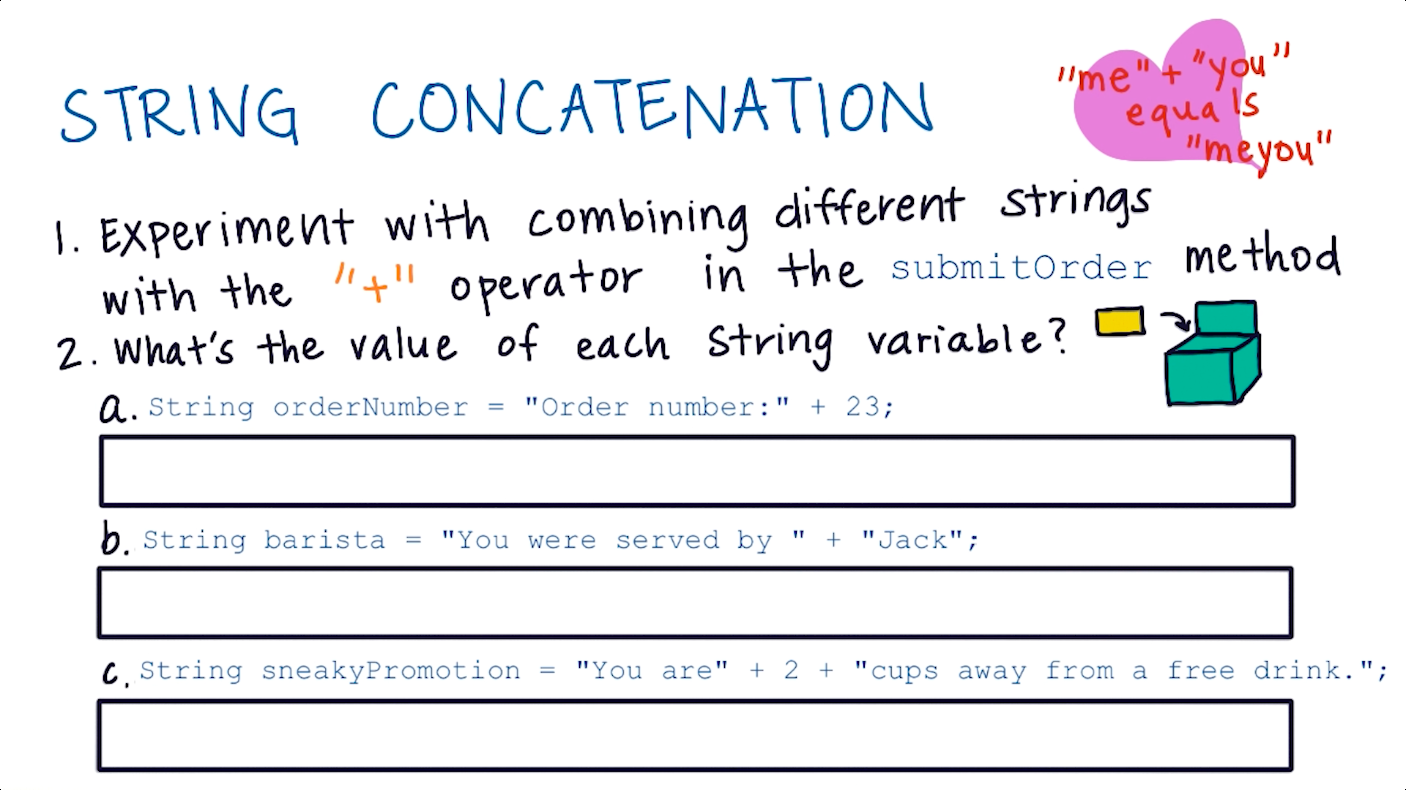 STRING CONCATENATION
"me" + "you"
equals
"meyou"
1. Experiment with combining different strings
with the "+" operator in the submitOrder method
2. What's the value of each String variable?
a. String orderNumber = "Order number:" + 23;
b. String barista = "You were served by " + "Jack";
c. String sneakyPromotion = "You are" + 2 + "cups away from a free drink.";